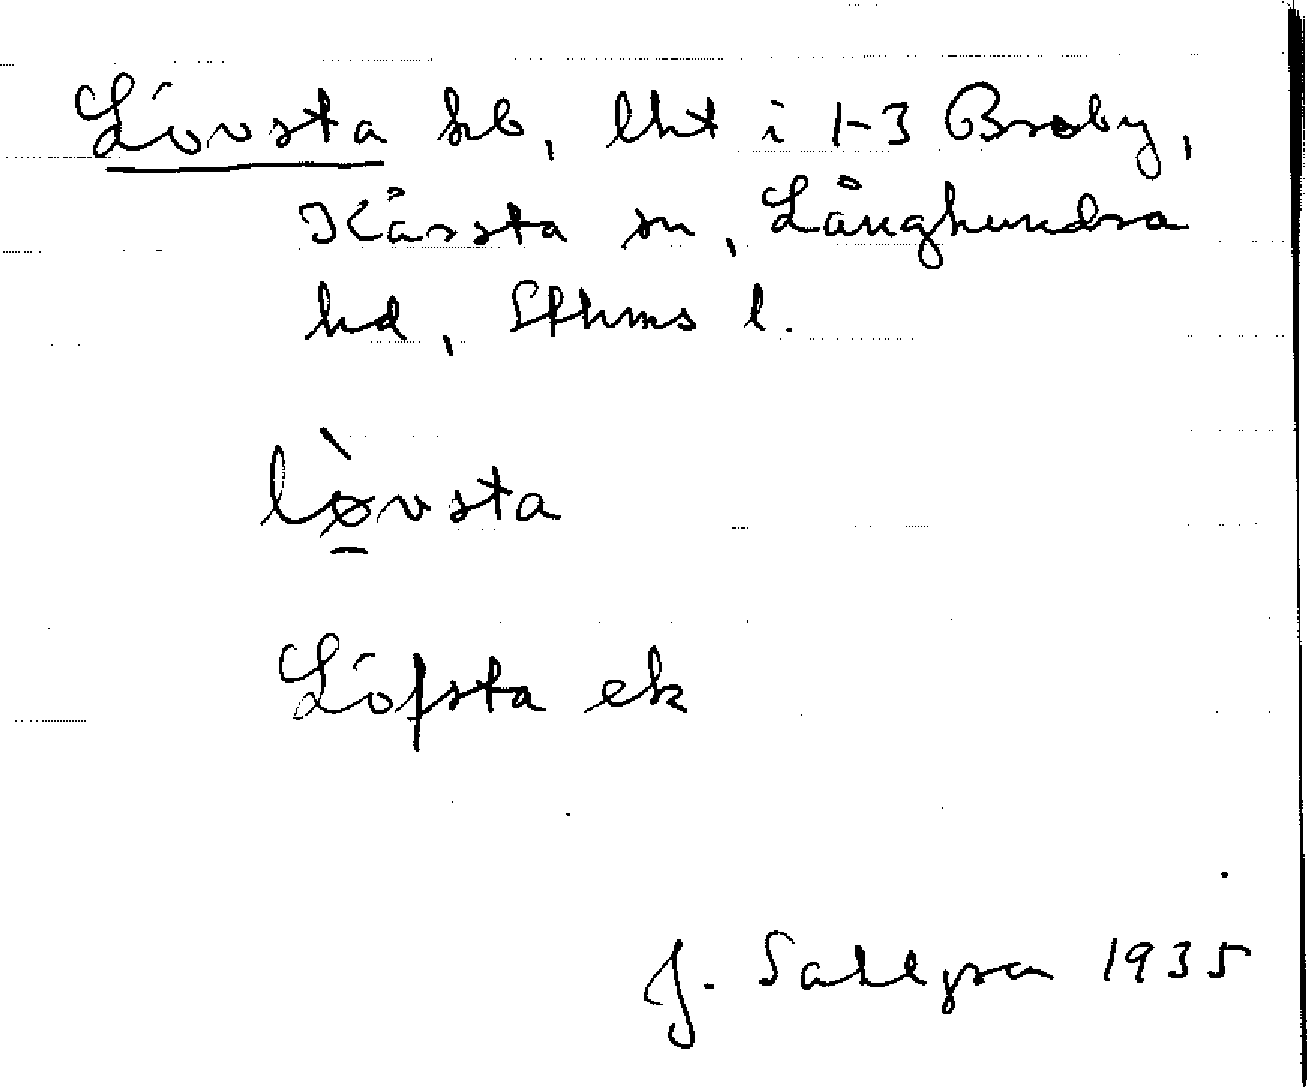 Lövsta hb, lht i 1-3 Broby,
Kårsta sn, Långhundra
hd, Sthms l.
lø̀vsta
Löfsta ek
J. Sahlgren 1935